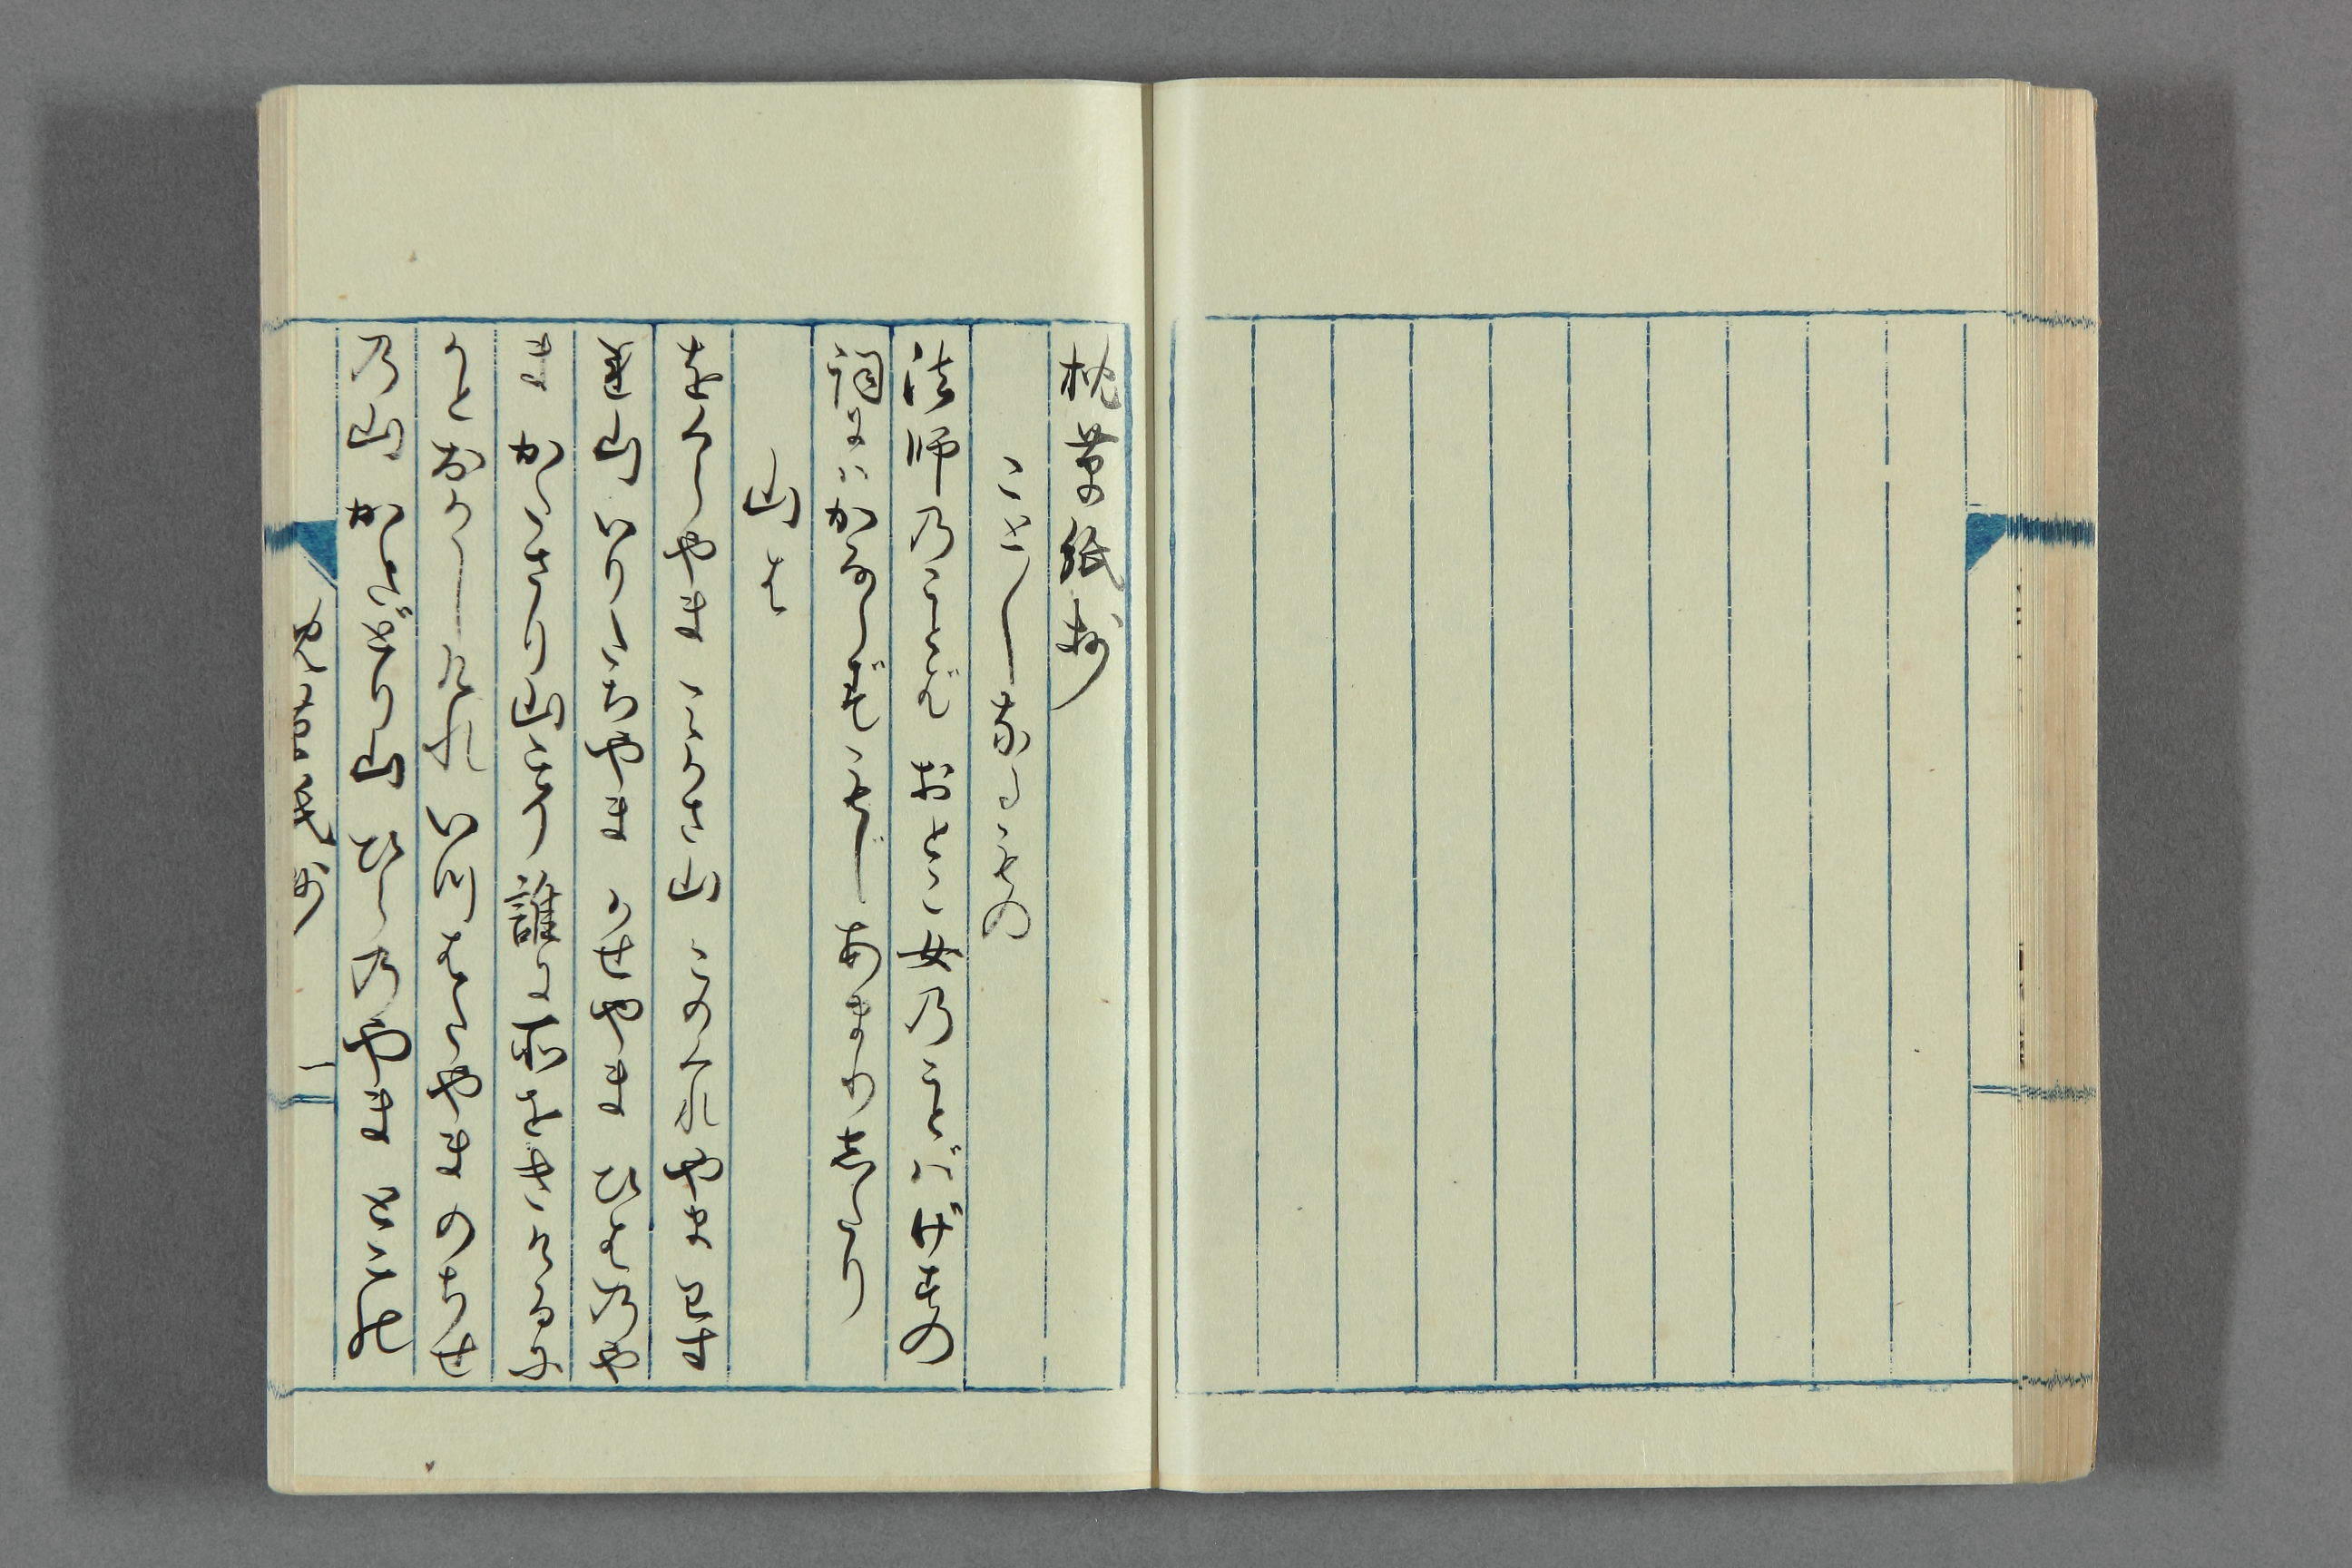 枕草紙抄
ことことなるもの
法師のことば おとこ女のことば げすの
詞にはかならずもじあまりしたり
山は
をぐらやま みかさ山 このくれやま わす
れ山 いりたちやま かせやま ひはのや
ま かたさり山こそ誰に所をきけるにか
とおかしけれ いつはたやま のちせ
の山 かさとり山 ひらのやま とこの
一